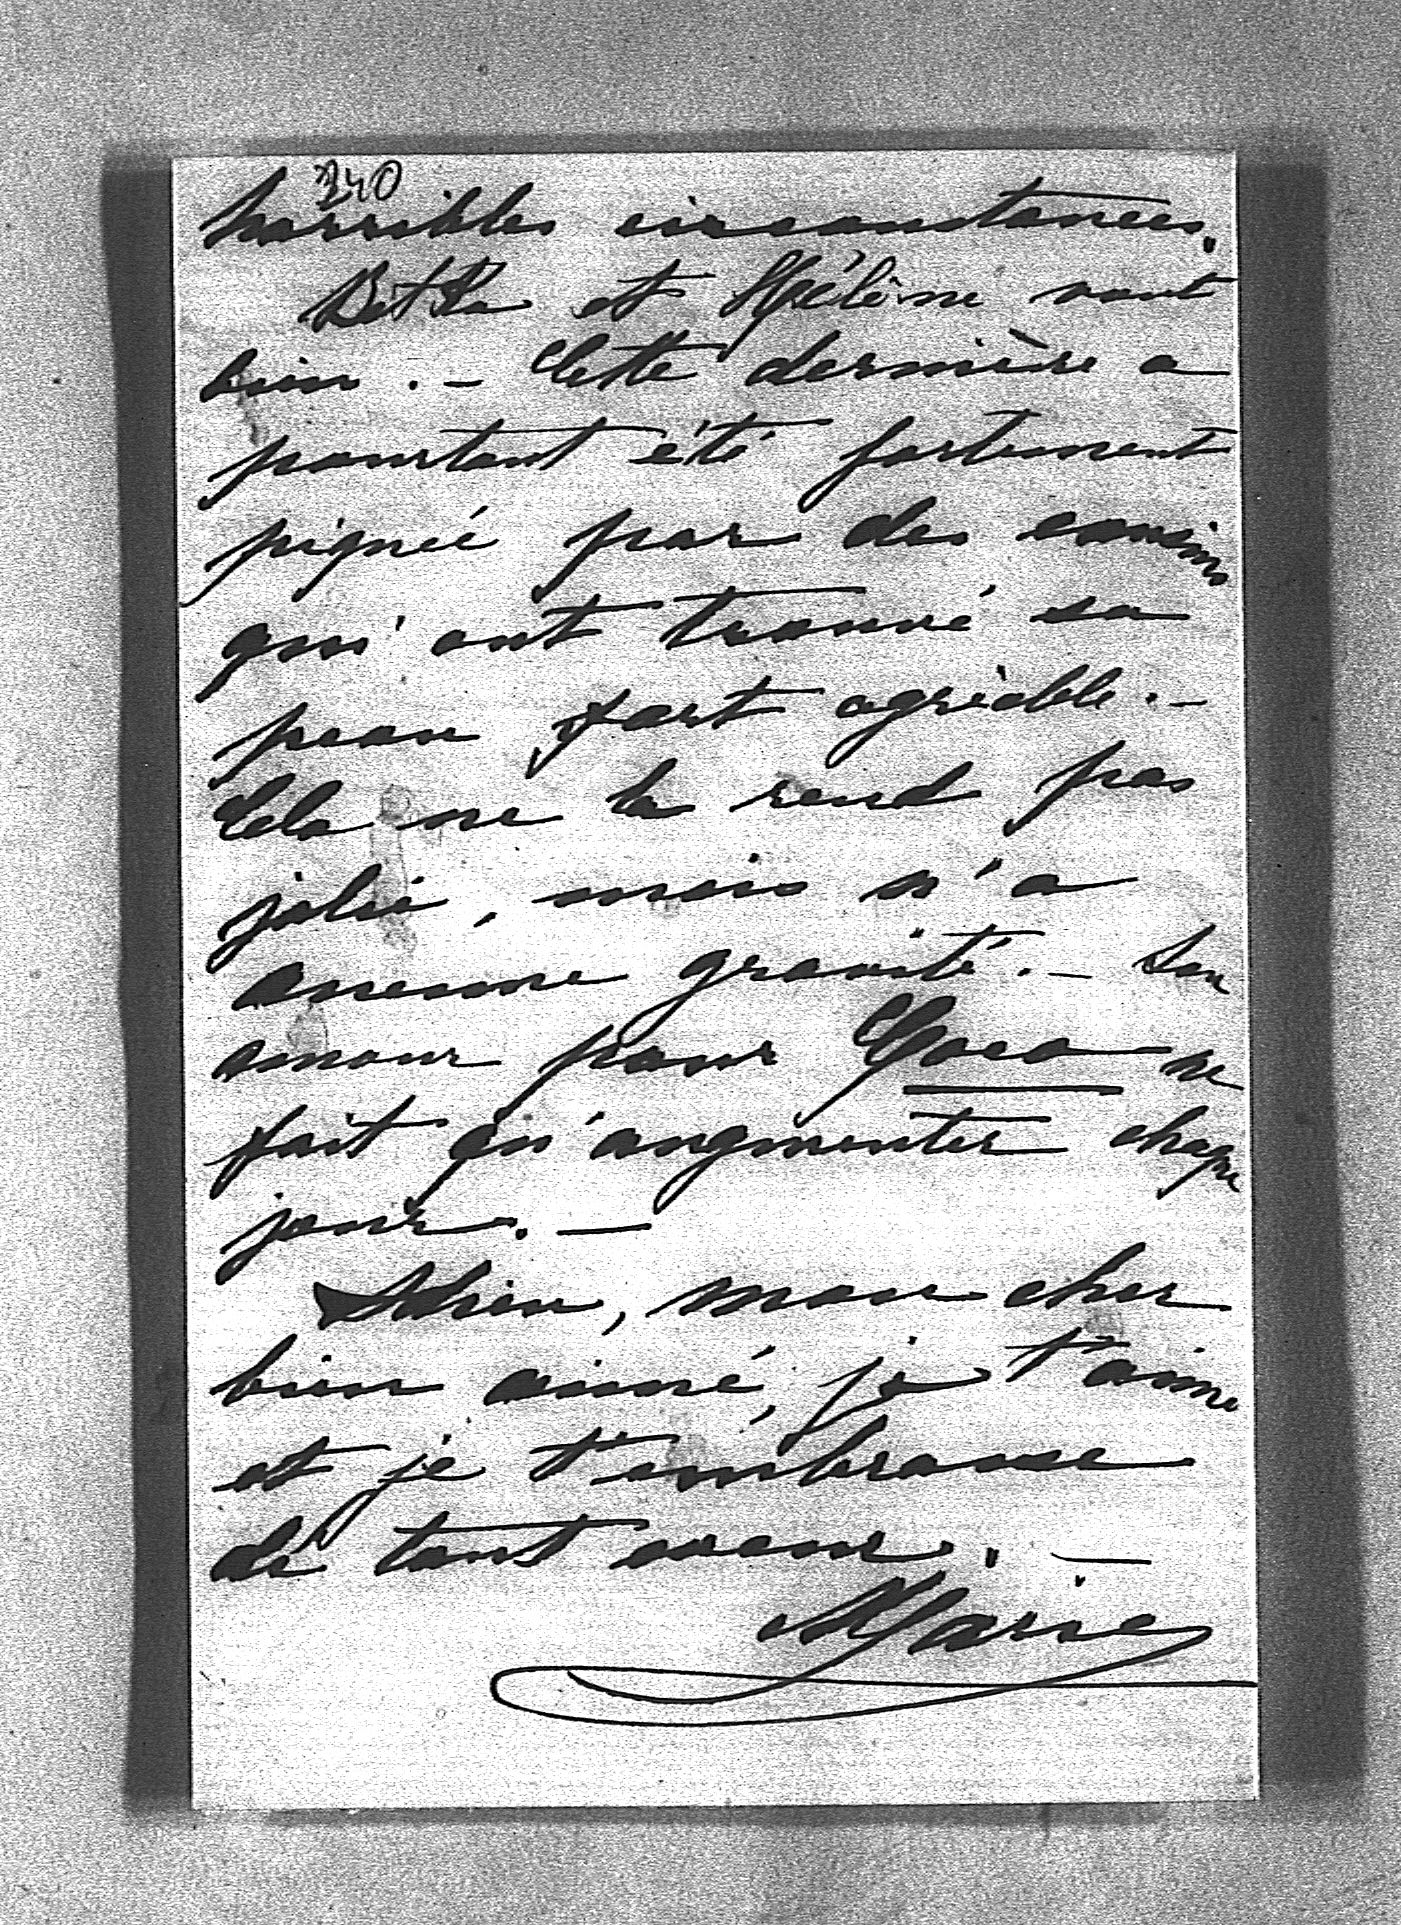 240
horribles circonstances.
Betka et Hélène vont
bien. – Cette dernière a
pourtant été fortement
piquée par des cousins
qui ont trouvé sa
peau fort agréable. –
Cela ne la rend pas
jolie, mais n'a
aucune gravité. – Son
amour pour Coco ne
fait qu'augmenter chaque
jour. —
Adieu, mon cher
bien aimé, je t'aime
et je t'embrasse
de tout cœur. —
Marie